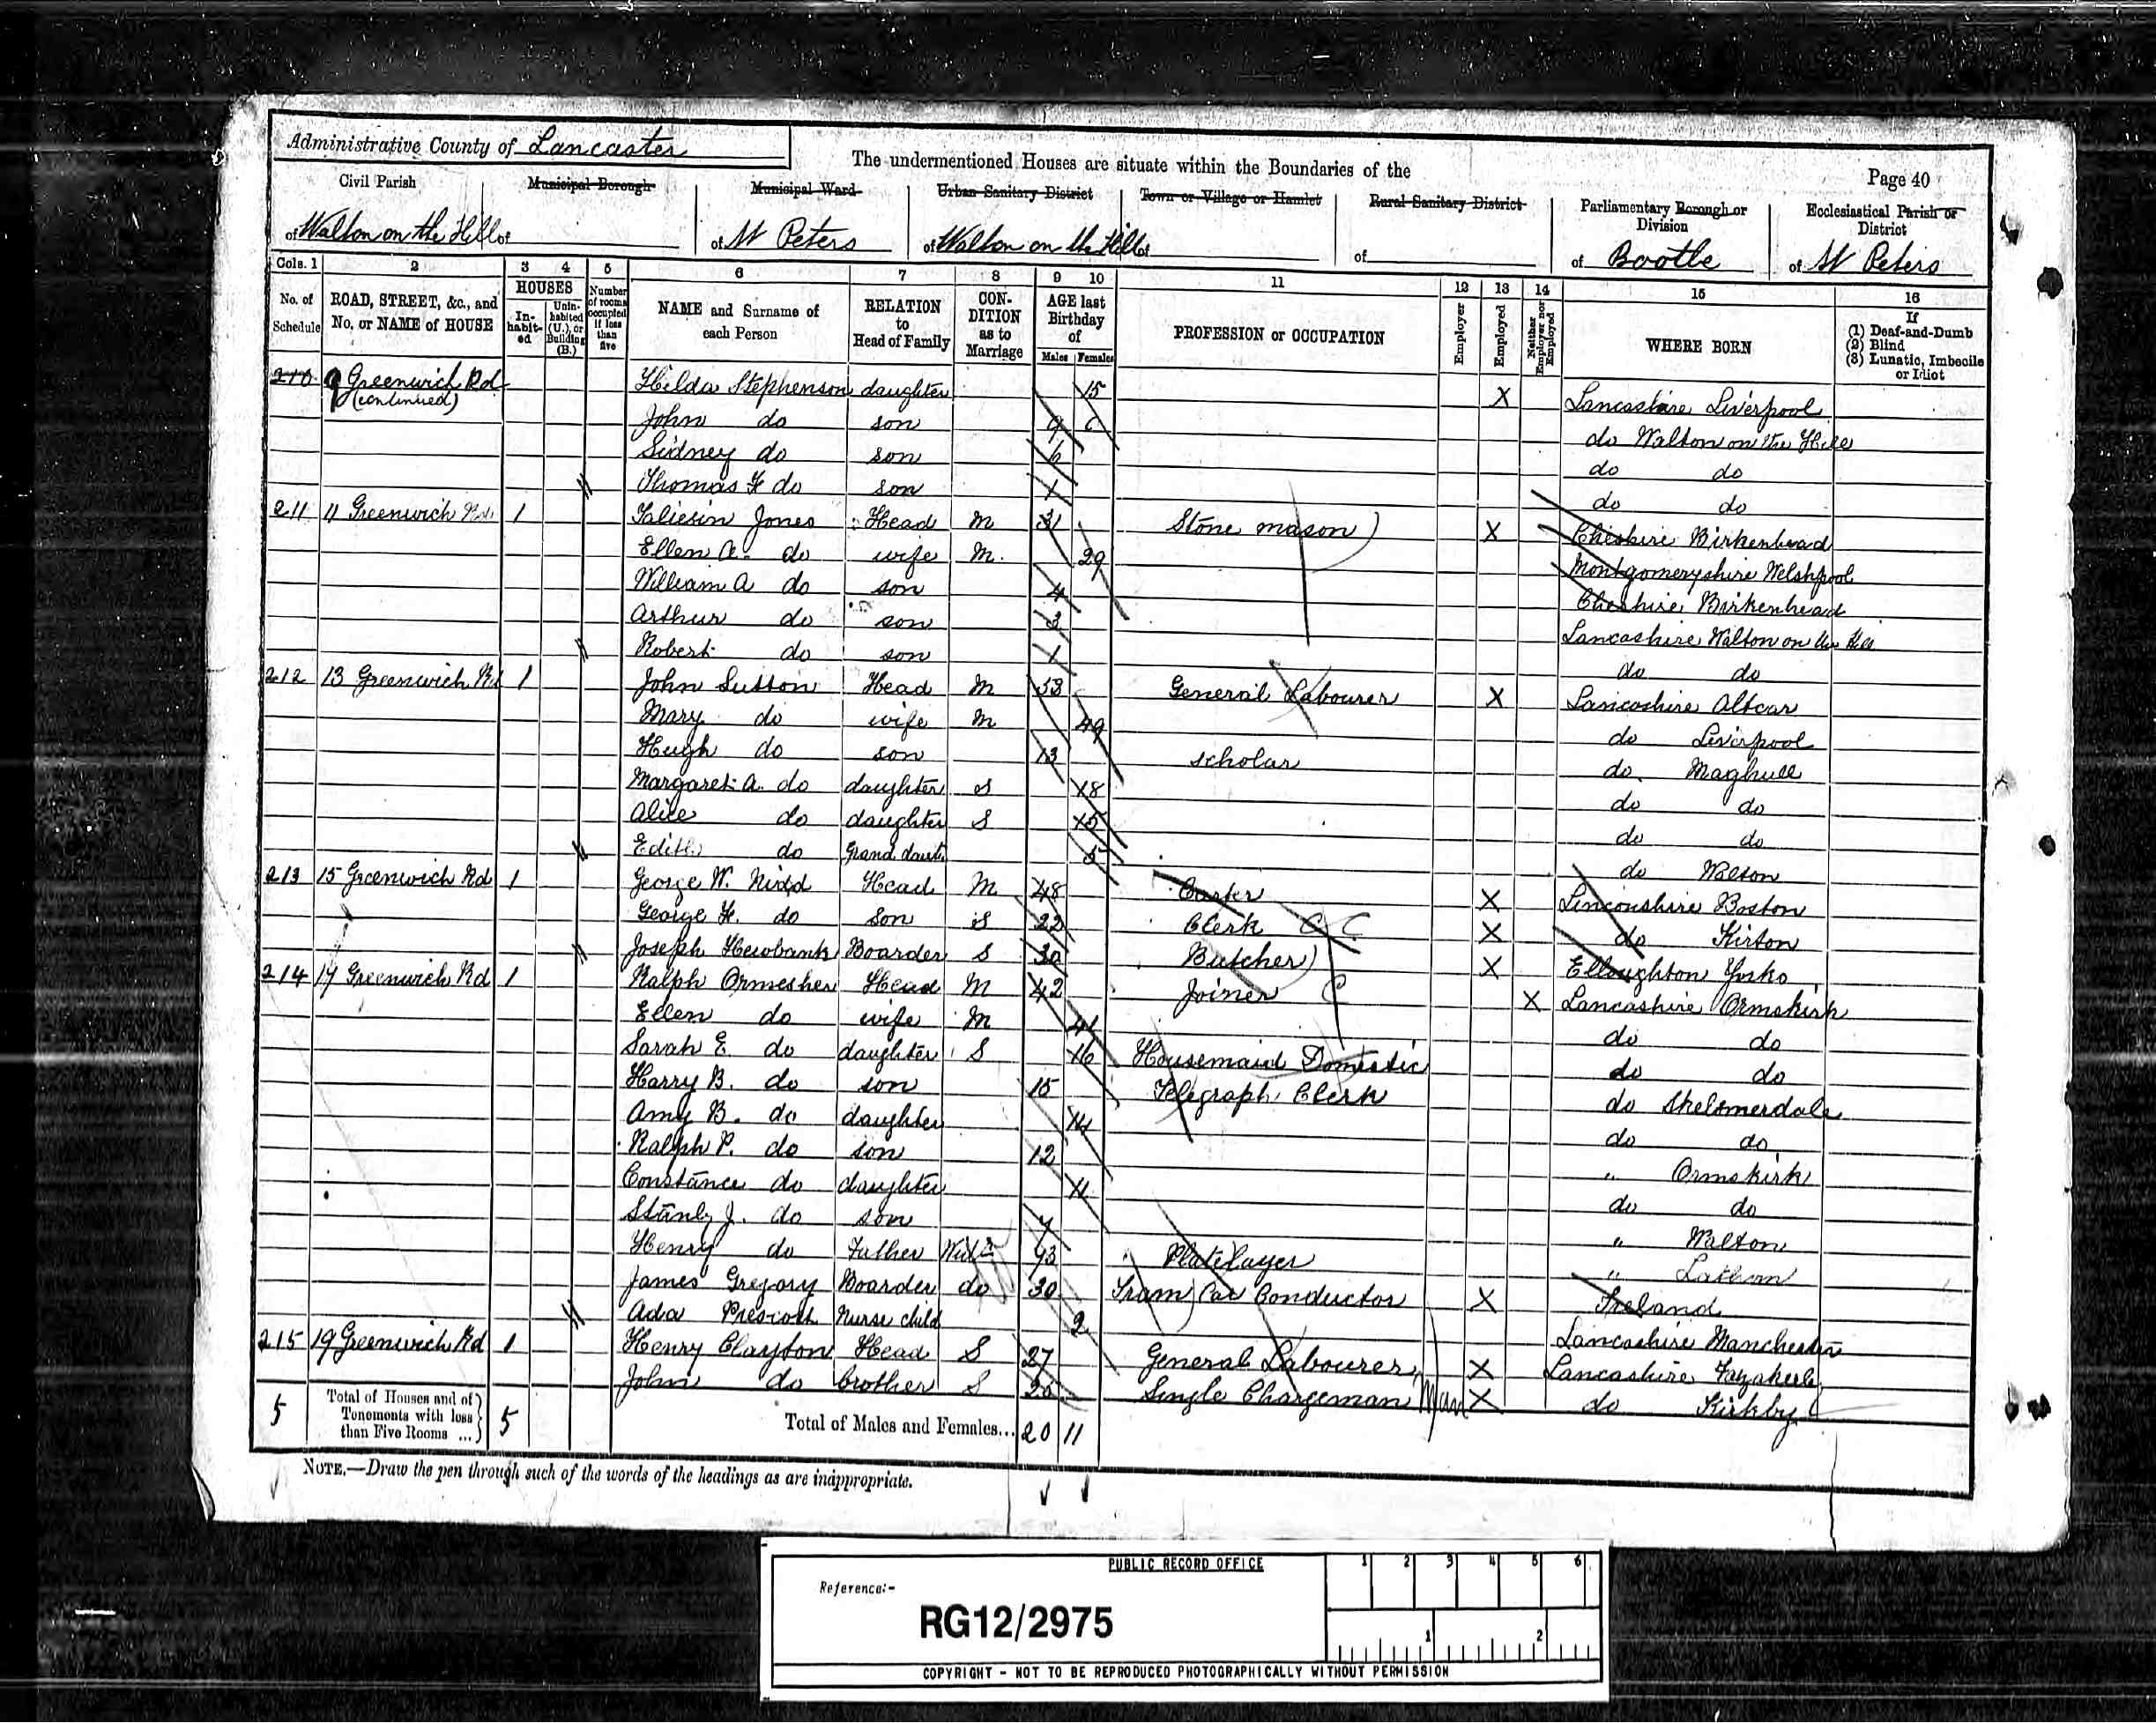 Administrative County of Lancaster
The undermentioned Houses are situate within the Boundaries of the
Page 40
Civil Parish
Municipal Borough
Municipal Ward
Urban Sanitary District
Town or Village or Hamlet
Rural Sanitary District
Parliamentary Borough or Division
Ecclesiastical Parish or District
of Walton on the Hill of
of St Peters
of Walton on the Hill of
of
of Bootle
of St Peters
Cols. 1 2 3 4 5 6 7 8 9 10 11 12 13 14 15 16
No. of Schedule
ROAD, STREET, &c., and No. or NAME of HOUSE
HOUSES
In-habit-ed
Unin-habited (U.), or Building (B.)
Number of rooms occupied if less than five
NAME and Surname of each Person
RELATION to Head of Family
CON-DITION as to Marriage
AGE last Birthday of
Males Females
PROFESSION or OCCUPATION
Employer
Employed
Neither Employer nor Employed
WHERE BORN
If
(1) Deaf-and-Dumb
(2) Blind
(3) Lunatic, Imbecile or Idiot
210 9 Greenwich Rd Hilda Stephenson daughter 15 X Lancashire Liverpool
(continued)
John do son 9 do Walton on the Hill
Sidney do son 6 do do
Thomas F do son 1 do do
211 11 Greenwich Rd 1 Taliesin Jones Head M 31 Stone mason X Cheshire Birkenhead
Ellen A. do wife M. 29 Montgomeryshire Welshpool
William A do son 4 Cheshire Birkenhead
Arthur do son 3 Lancashire Walton on the Hill
Robert do son 1 do do
212 13 Greenwich Rd 1 John Sutton Head M 53 General Labourer X Lancashire Altcar
Mary do wife M 49 do Liverpool
Hugh do son 13 scholar do Maghull
Margaret A. do daughter S 18 do do
Alice do daughter S 15 do do
Edith do Grand daut. 5 do Walton
213 15 Greenwich Rd 1 George W. Nidd Head M 48 Carter X Lincolnshire Boston
George H. do son S 22 Clerk C C X do Kirton
Joseph Hewbank Boarder S 30 Butcher X Elloughton Yorks
214 17 Greenwich Rd 1 Ralph Ormesher Head M 42 Joiner C X Lancashire Ormskirk
Ellen do wife M 41 do do
Sarah E. do daughter S 16 Housemaid Domestic do do
Harry B. do son 15 Telegraph Clerk do Skelmerdale
Amy B. do daughter 14 do do
Ralph P. do son 12 " Ormskirk
Constance do daughter 11 do do
Stanly J. do son 7 " Walton
Henry do Father 73 Platelayer " Lathom
James Gregory Boarder do 30 Tram Car Conductor X Ireland
Ada Prescott Nurse child 2 Lancashire Manchester
215 19 Greenwich Rd 1 Henry Clayton Head S 27 General Labourer X Lancashire Fazakerly
John do brother S Single Chargeman X do Kirkby
5 Total of Houses and of Tenements with less than Five Rooms ... 5 Total of Males and Females... 20 11
NOTE.—Draw the pen through such of the words of the headings as are inappropriate.
PUBLIC RECORD OFFICE
Reference:-
RG12/2975
1 2 3 4 5 6
1 2
COPYRIGHT - NOT TO BE REPRODUCED PHOTOGRAPHICALLY WITHOUT PERMISSION